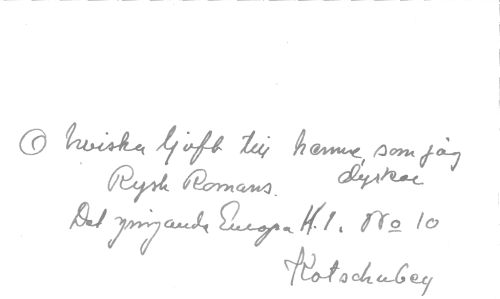 O hviska ljuft till henne, som jag
dyrkar
Rysk Romans.
Det sjungande Europa H.1. No 10
Kotschubey